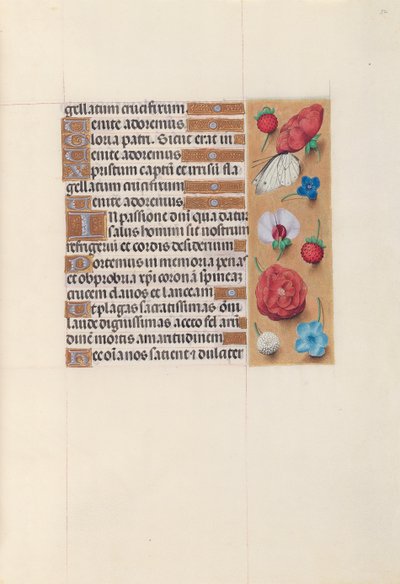 gellatum crucifixum.
Venite adoremus
Gloria patri. Sicut erat in
Venite adoremus
Xpristum captum et irrisū fla
gellatum crucifixum
Venite adoremus
In passione dnī qua datur
salus homini sit nostrum
refrigeriū et cordis desideriū
Portemus in memoria penas
et obprobria xpī coronā spineā
crucem clauos et lanceam
Et plagas sacratissimas om̄i
laude dignissimas aceto fel arū
dinē mortis amaritudinem
Hec oīa nos satient et dulciter